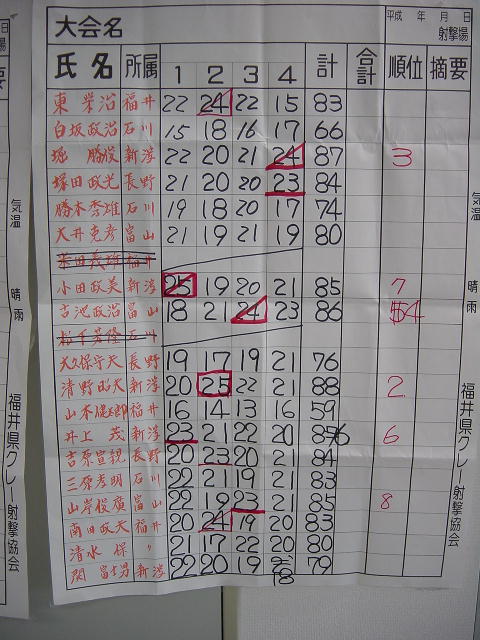 大会名
平成 年 月 日
射撃場
氏名 所属 1 2 3 4 計 合計 順位 摘要
東 栄治 福井 22 24 22 15 83
白坂政治 石川 15 18 16 17 66
堀 勝俊 新潟 22 20 21 24 87 3
塚田政光 長野 21 20 20 23 84
勝木秀雄 石川 19 18 20 17 74
大井克彦 富山 21 19 21 19 80
福井
小田政美 新潟 25 19 20 21 85 7
古池政治 富山 18 21 24 23 86 4
石川
大久保守夫 長野 19 17 19 21 76
清野昭夫 新潟 20 25 22 21 88 2
山本健太郎 福井 16 14 13 16 59
井上 茂 新潟 23 21 22 20 86 6
吉原宣親 長野 20 23 20 21 84
三原孝明 石川 22 21 19 21 83
山岸俊廣 富山 22 19 23 21 85 8
南田政夫 福井 20 24 19 20 83
清水 保 〃 21 17 22 20 80
関 富士男 新潟 22 20 19 18 79
気温
晴雨
福井県クレー射撃協会
気温
晴雨
福井県クレー射撃協会